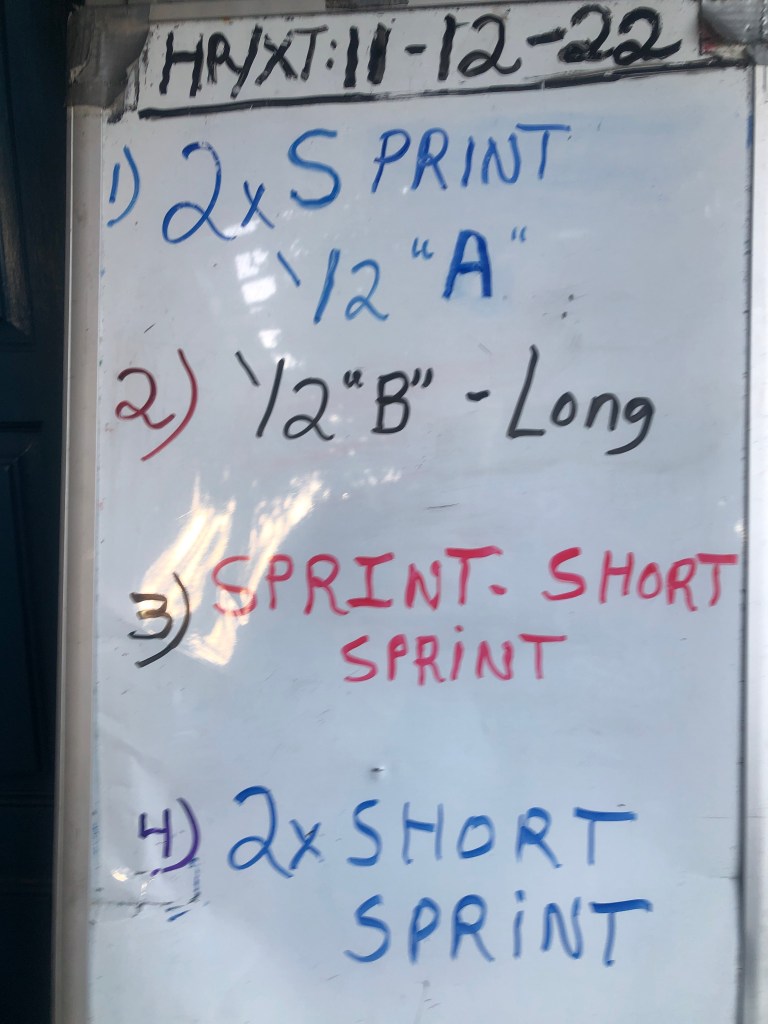 HR/XT: 11-12-22
1) 2x SPRINT
1/2 "A"
2) 1/2 "B" - Long
3) SPRINT. SHORT
SPRiNT
4) 2x SHORT
SPRiNT